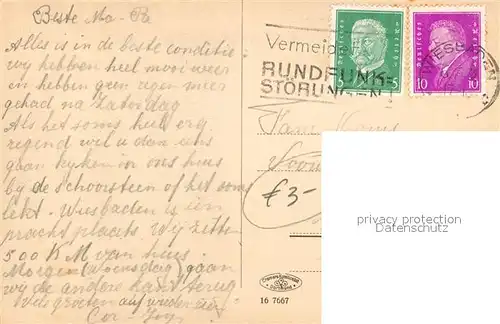 Beste Ma - Pa
Alles is in de beste conditie
wij hebben heel mooi weer
in hebben geen regen meer
gehad na Zaterdag
Als het soms heel erg
regend wel u dan uns
gaan kyken in ons huis
by de schoorsteen of het soms
lekt. Wiesbaden is een
pracht plaats Wy zitte
500 KM van huis
Morgen (Woensdag) gaan
wij de andere kant terug
Vele groeten auf wiedersehn
Cor -
Vermeidet
RUNDFUNK=
STÖRUNGEN
WIESBADEN
5
10
£ 3-
privacy protection
16 7667